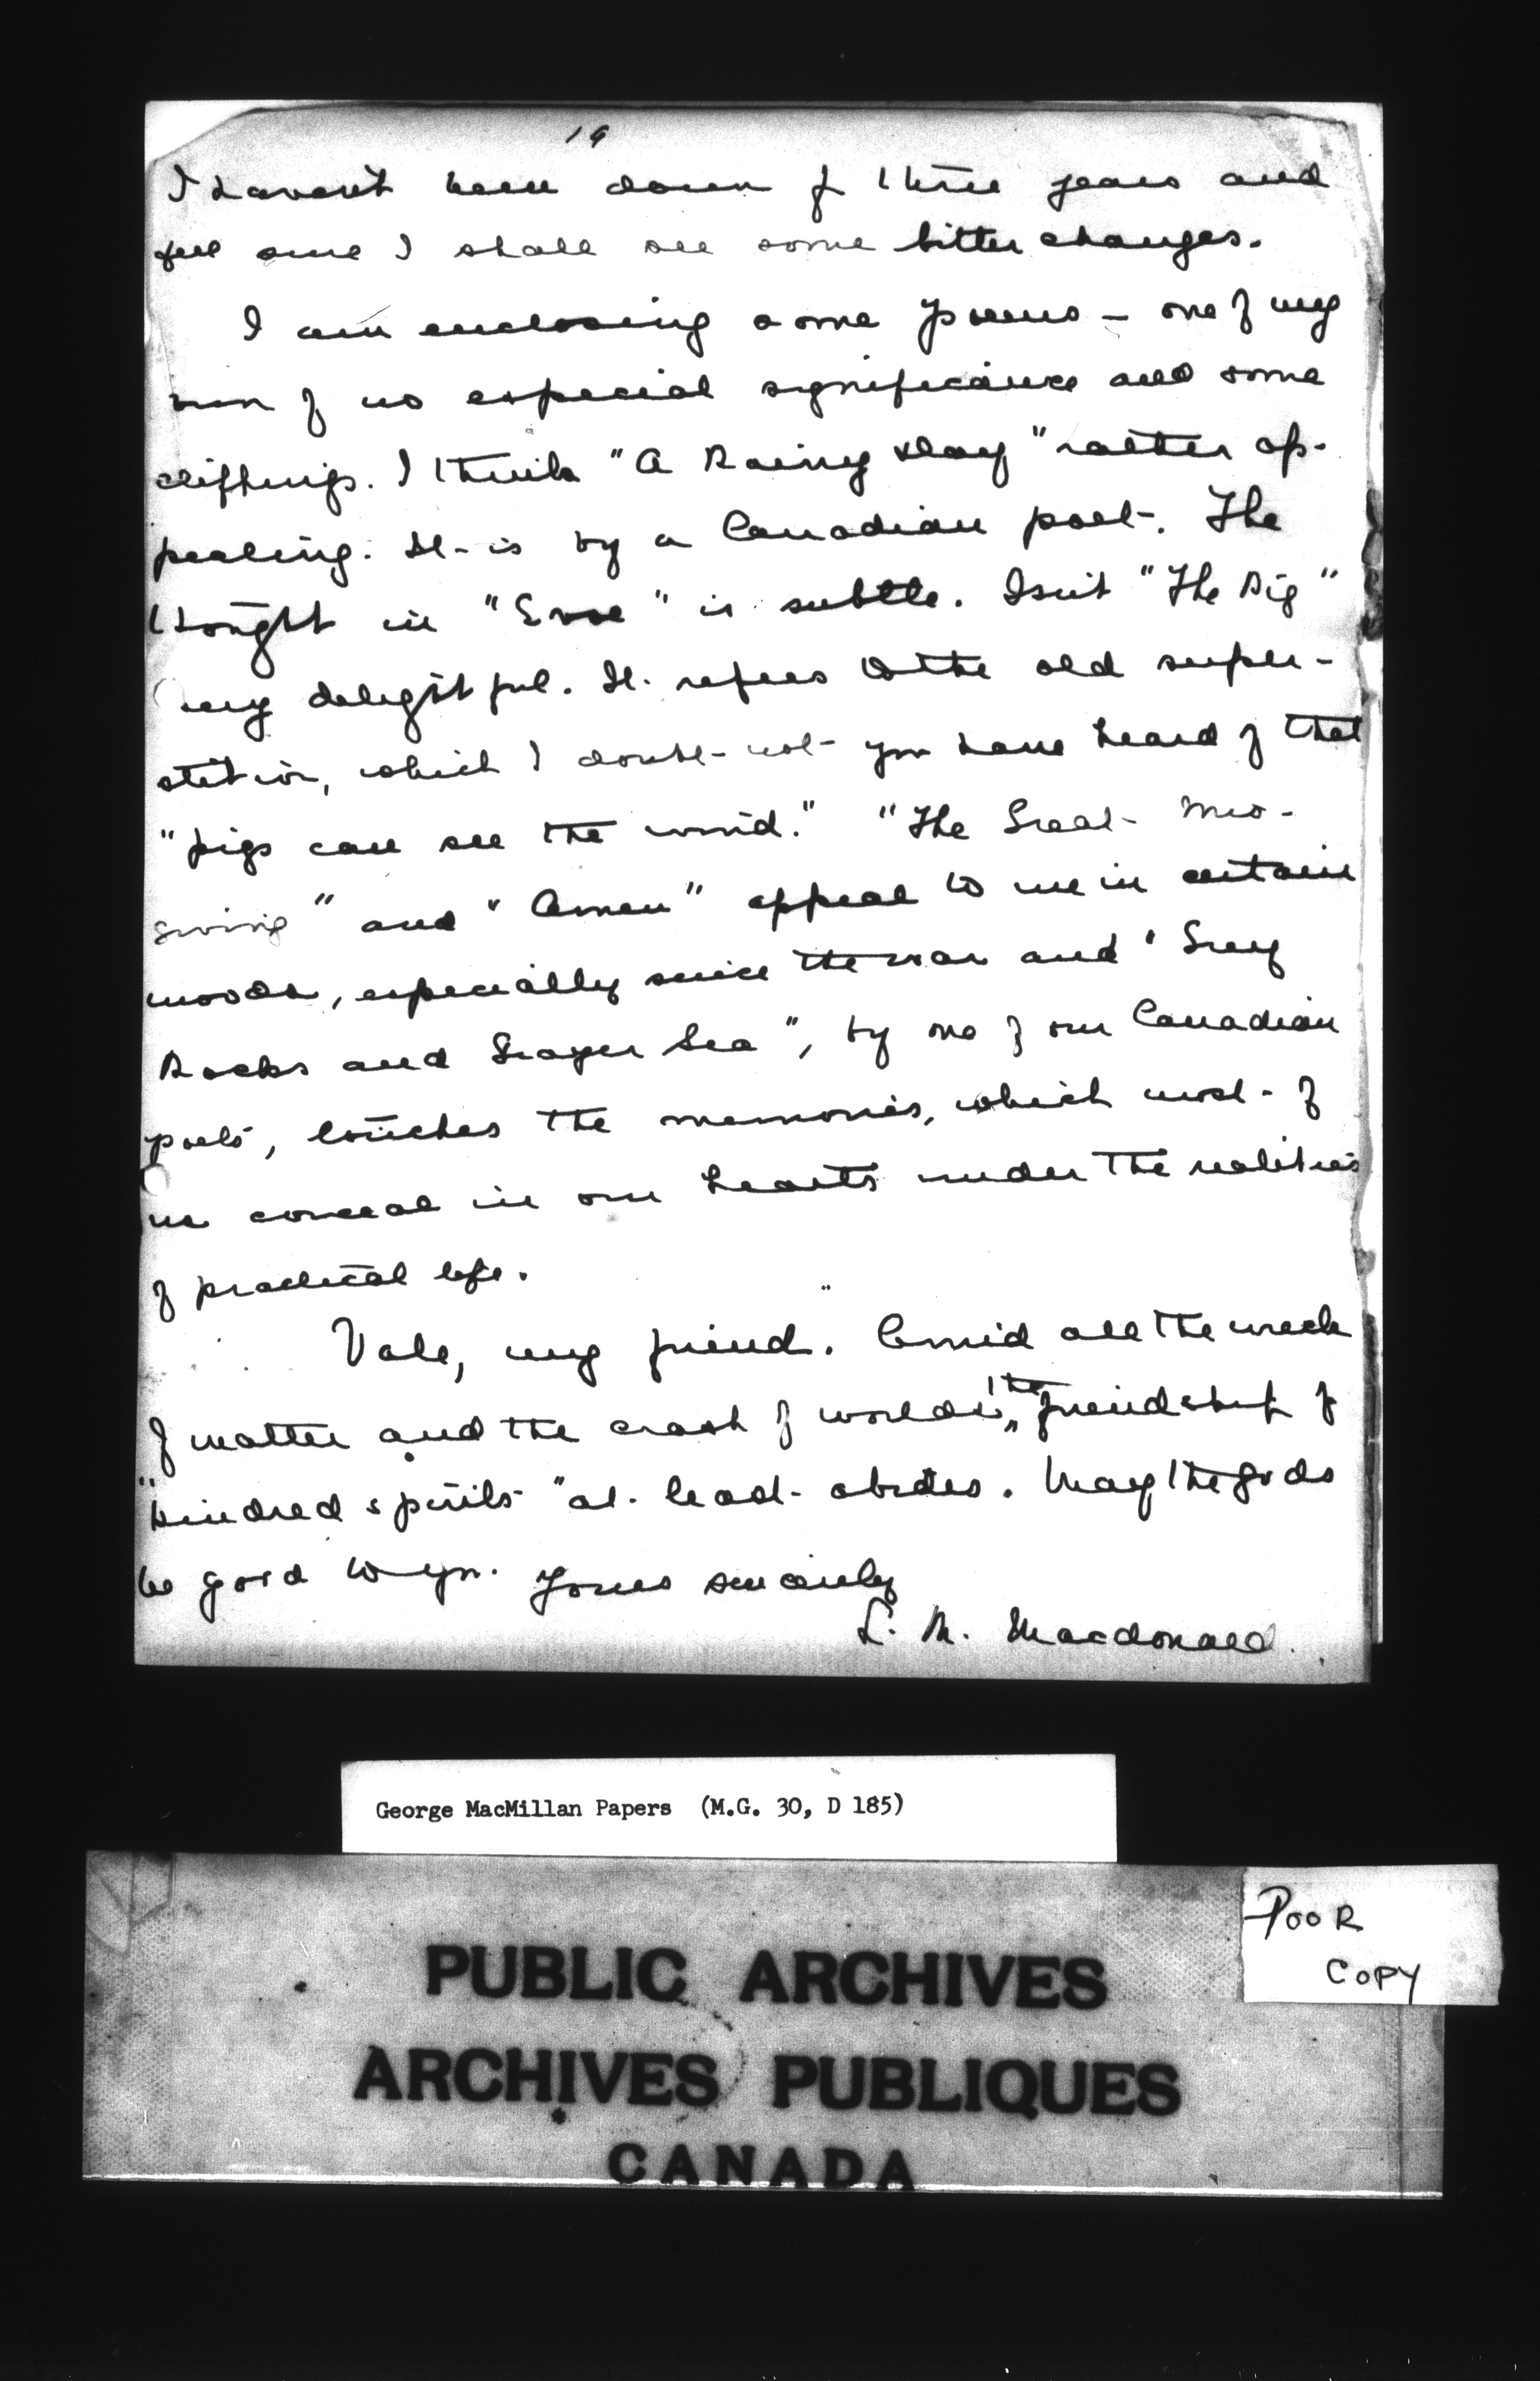 19
I haven't been down for three years and
feel sure I shall see some bitter changes.
I am enclosing some poems – one of my
own of no especial significance and some
clippings. I think "A Rainy Day" rather ap-
pealing. It is by a Canadian poet. The
thought in "Eve" is subtle. Isn't "The Pig"
very delightful. It refers to the old super-
stition, which I doubt not you have heard of that
"pigs can see the wind." "The Great Mis-
giving" and "Amen" appeal to me in certain
moods, especially since the war and "Grey
Rocks and Grayer Sea", by one of our Canadian
poets, touches the memories, which most of
us conceal in our hearts under the realities
of practical life.
Vale, my friend. Amid all the wreck
of matter and the crash of worlds, the friendship of
"kindred spirits" at least abides. May the gods
be good to you. Yours sincerely
L. M. Macdonald.
George MacMillan Papers (M.G. 30, D 185)
POOR
COPY
PUBLIC ARCHIVES
ARCHIVES PUBLIQUES
CANADA